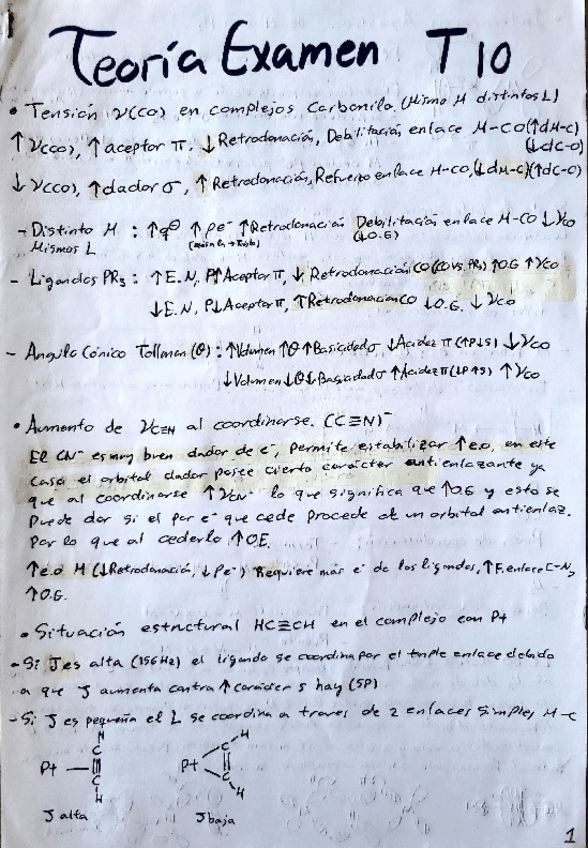 Teoría Examen T10
• Tensión ν(CO) en complejos Carbonilo. (Mismo M distintos L)
↑ν(CO), ↑aceptor π. ↓Retrodonación, Debilitación enlace M-CO(↑dM-C)
(↓dC-O)
↓ν(CO), ↑dador σ, ↑Retrodonación, Refuerzo enlace M-CO, (↓dM-C)(↑dC-O)
- Distinto M : ↑qᶿ ↑ρe⁻ ↑Retrodonación Debilitación enlace M-CO ↓νCO
Mismos L (↓O.E)
- Ligandos PR₃ : ↑E.N, P↑Aceptor π, ↓Retrodonación CO (CO vs. PR₃) ↑O.G ↑νCO
↓E.N, P↓Aceptor π, ↑Retrodonacion CO ↓O.G. ↓νCO
- Angulo Cónico Tollman (θ) : ↑Volumen ↑θ ↑Basicidad σ ↓Acidez π (↑P↓S) ↓νCO
↓Volumen ↓θ ↓Basicidad σ ↑Acidez π (↓P↑S) ↑νCO
• Aumento de νC≡N al coordinarse. (C≡N)⁻
El CN⁻ es muy buen dador de e⁻, permite estabilizar ↑e.o, en este
caso el orbital dador posee cierto carácter antienlazante ya
que al coordinarse ↑νCN⁻ lo que significa que ↑O.G y esto se
puede dar si el par e⁻ que cede procede de un orbital antienlaz.
Por lo que al cederlo ↑O.E.
↑e.o M (↓Retrodonación, ↓ρe⁻) Requiere más e⁻ de los ligandos, ↑F.enlace C-N,
↑O.G.
• Situación estructural HC≡CH en el complejo con Pt
- Si J es alta (156Hz) el ligando se coordina por el triple enlace debido
a que J aumenta cuanto ↑carácter s hay (SP)
- Si J es pequeña el L se coordina a traves de 2 enlaces simples M-C
H
C
Pt
C
H
J alta
H
C
Pt
C
H
J baja
1